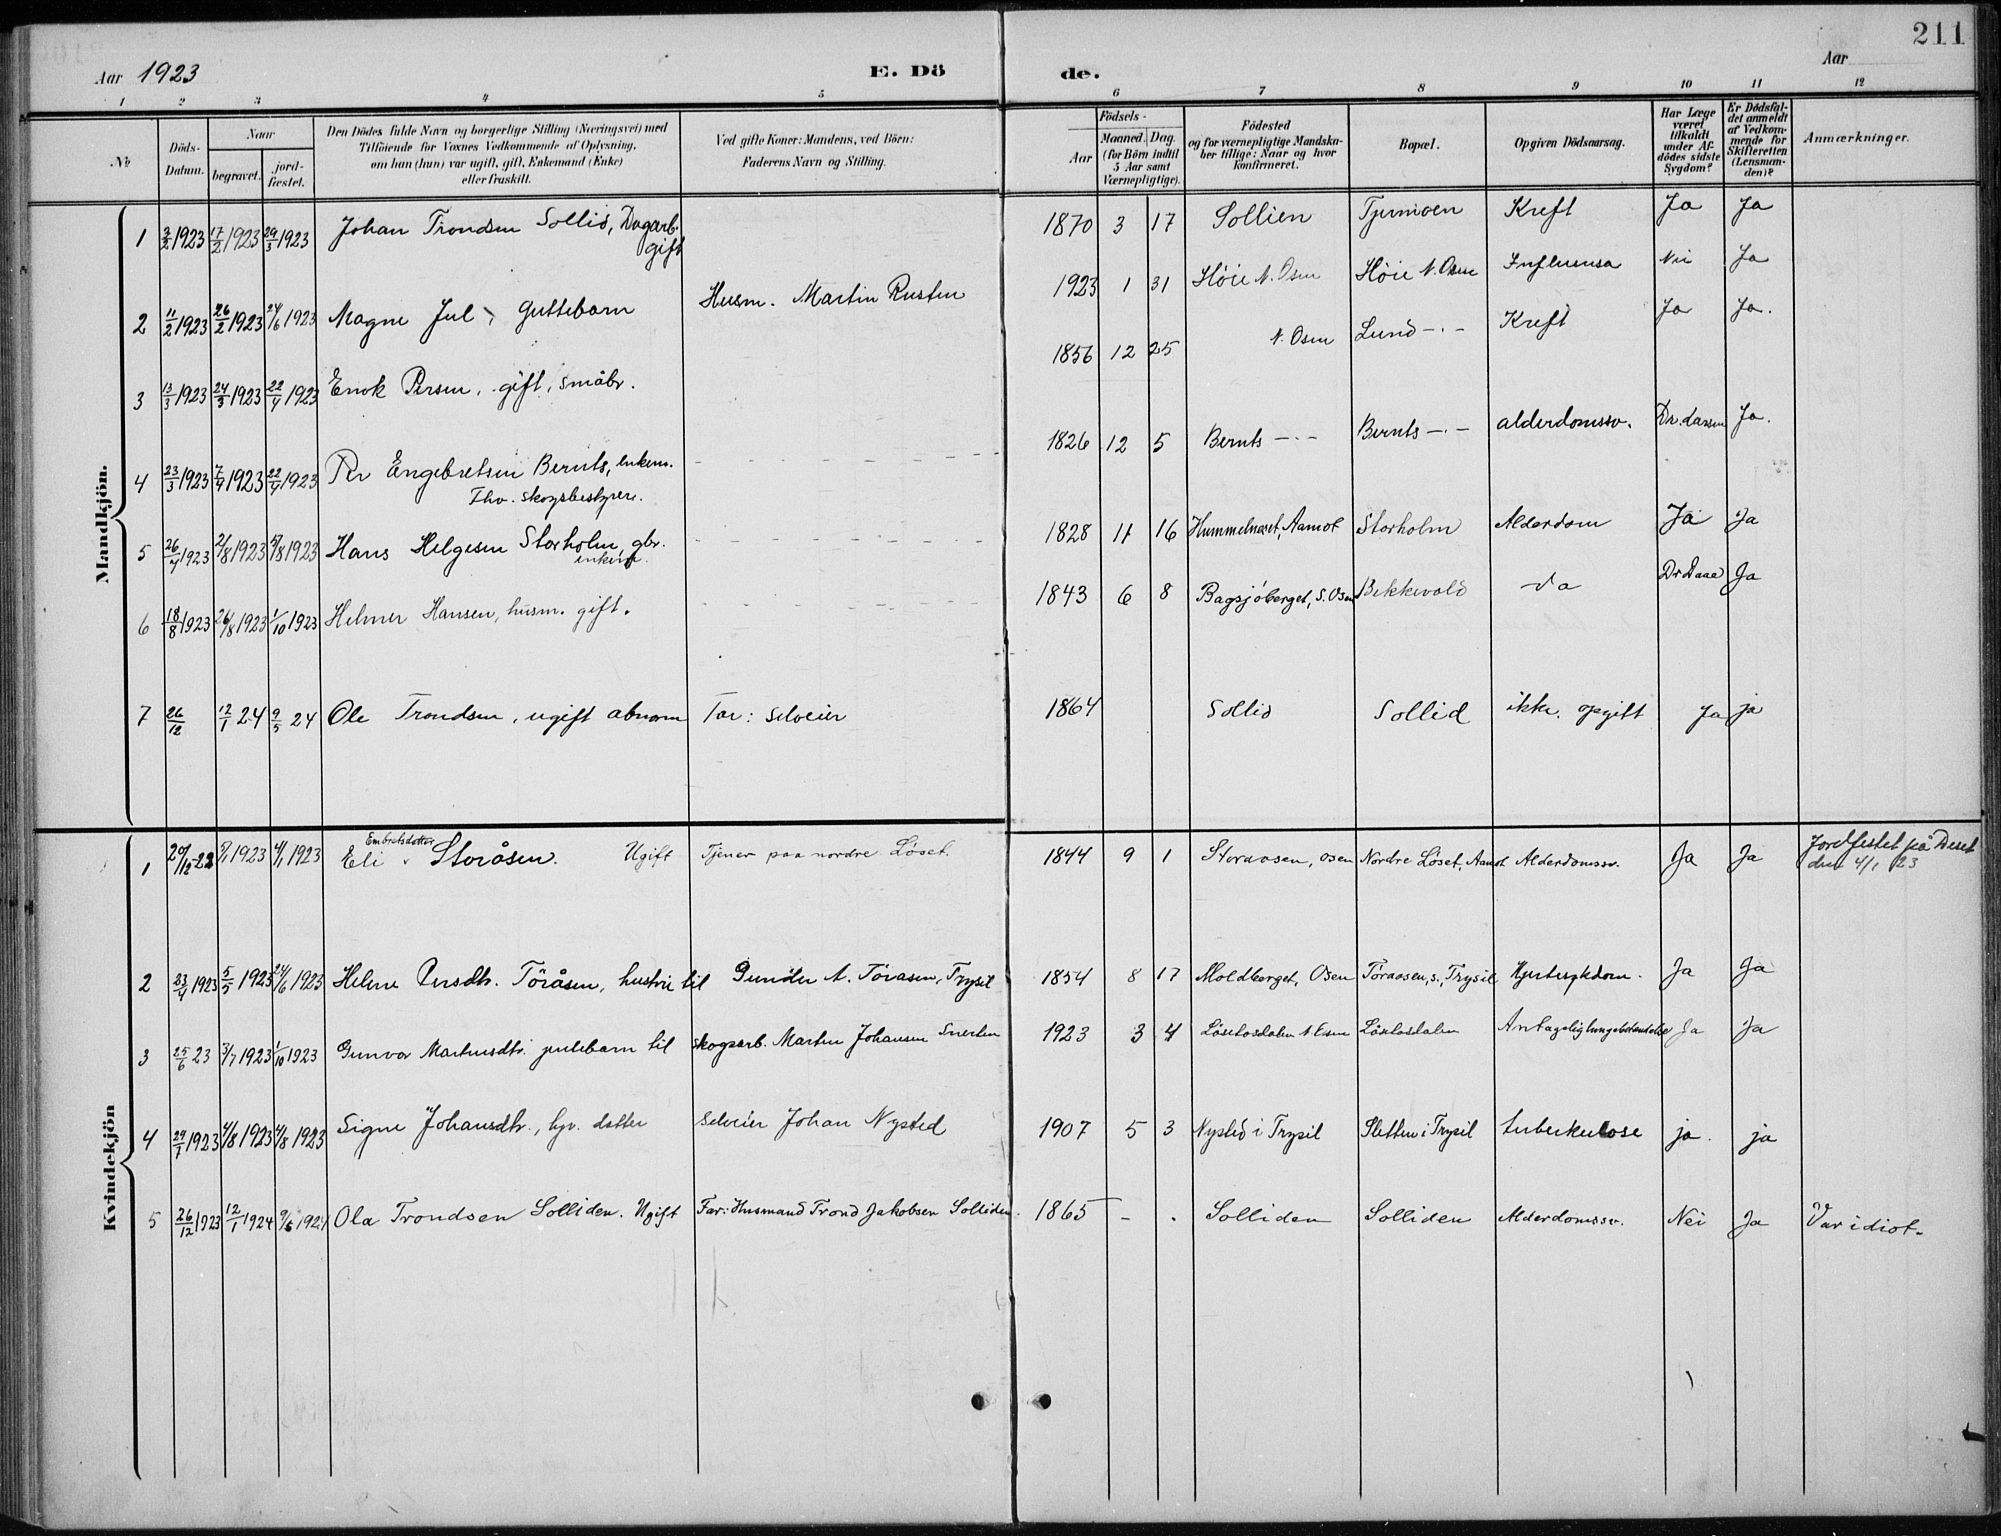 211
Aar 1923
E. Dö
de.
Aar
1 2 3 4 5 6 7 8 9 10 11 12
No
Döds-Datum.
Naar
begravet.
jord-fæstet.
Den Dödes fulde Navn og borgerlige Stilling (Næringsvei) med
Tilföiende for Voxnes Vedkommende af Oplysning,
om han (hun) var ugift, gift, Enkemand (Enke)
eller fraskilt.
Ved gifte Koner: Mandens, ved Börn:
Faderens Navn og Stilling.
Födsels-
Aar
Maaned. Dag.
(for Börn indtil
5 Aar samt
Værnepligtige).
Födested
og for værnepligtige Mandska-
ber tillige: Naar og hvor
konfirmeret.
Bopæl.
Opgiven Dödsaarsag.
Har Læge
været
tilkaldt
under Af-
dödes sidste
Sygdom?
Er Dödsfal-
det anmeldt
af Vedkom-
mende for
Skifteretten
(Lensman-
den)?
Anmærkninger.
Mandkjön.
1 2/2 1923 17/2 1923 29/3 1923 Johan Trondsen Sollid, Dagarb. gift 1870 3 17 Sollien Tjernmoen Kreft Ja Ja
2 11/2 1923 26/2 1923 24/6 1923 Magne Jul, guttebarn Husm. Martin Rusten 1923 1 31 Höie N. Osen Höie N. Osen Influensa Nei Ja
3 13/3 1923 24/3 1923 22/4 1923 Enok Persen, gift, småbr. 1856 12 25 N. Osen Lund -.- Kreft Ja Ja.
4 23/3 1923 7/4 1923 22/4 1923 Per Engebretsen Bernts, enkem.
Fhv. skogsbestyrer. 1826 12 5 Bernts -.- Bernts -.- alderdomssv. Dr. Larsen Ja.
5 26/7 1923 2/8 1923 5/8 1923 Hans Helgesen Storholm, gbr.
enkem. 1828 11 16 Hummelneset, Aamot Storholm Alderdom Ja Ja
6 18/8 1923 26/8 1923 1/10 1923 Helmer Hansen, husm. gift. 1843 6 8 Bagsjöberget, S. Osen Bekkevold da Dr Daae Ja
7 26/12 12/1 24 9/5 24 Ole Trondsen, ugift abnorm Far: selveier 1864 Sollid Sollid ikke opgitt Ja ja
Kvindekjön
1 29/12-22 5/1 1923 4/1 1923 Eli Embretsdatter Storåsen. Ugift Tjener paa nordre Löset. 1844 9 1 Storaasen, Osen Nordre Löset, Aamot Alderdomssv. Ja Ja Jordfestet på Deset
den 4/1 23
2 23/4 1923 5/5 1923 24/6 1923 Helene Persdtr. Töråsen, hustru til Gunder A. Töråsen, Trysil 1854 8 17 Moldberget, Osen Töraasen, s., Trysil Hjertesykdom. Ja Ja
3 25/6 23 3/7 1923 1/10 1923 Gunvor Martinsdtr. pikebarn til skogsarb. Martin Johansen Snerten 1923 3 4 Lösetosdalen N. Osen Lösetosdalen Antagelig lungebetendelse Ja Ja
4 29/7 1923 4/8 1923 4/8 1923 Signe Johansdtr., hjv. datter selveier Johan Nysted 1907 5 3 Nysted i Trysil Sletten i Trysil tuberkulose ja. ja
5 26/12 1923 12/1 1924 9/5 1924 Ola Trondsen Solliden. Ugift Far: Husmand Trond Jakobsen Solliden. 1865 - . Solliden Solliden Alderdomssv. Nei Ja Var idiot.